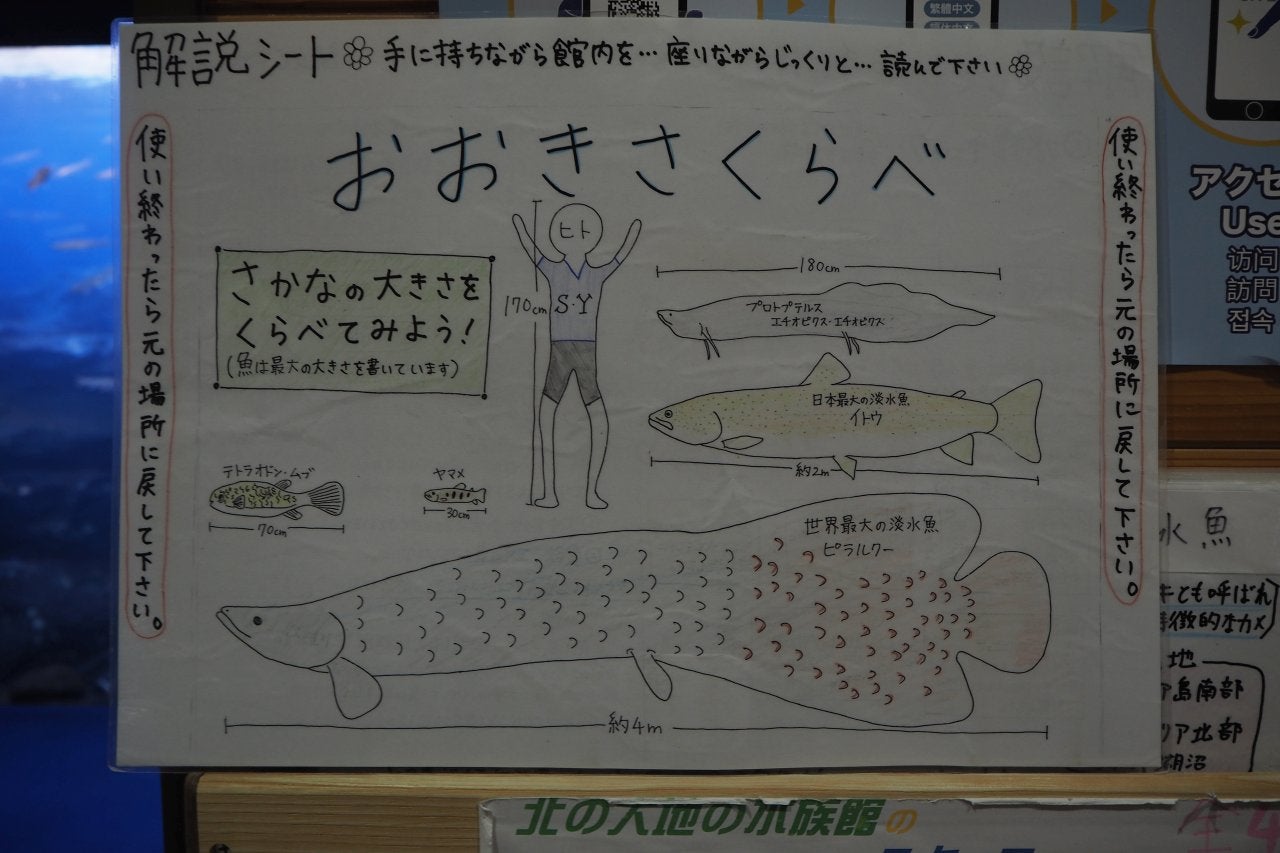 繁體中文
解説シート 手に持ちながら館内を… 座りながらじっくりと… 読んで下さい
使い終わったら元の場所に戻して下さい。
おおきさくらべ
さかなの大きさを
くらべてみよう!
(魚は最大の大きさを書いています)
ヒト
170cm
S・Y
180cm
プロトプテルス
エチオピクス・エチオピクス
日本最大の淡水魚
イトウ
約2m
テトラオドン・ムブ
70cm
ヤマメ
30cm
世界最大の淡水魚
ピラルクー
約4m
使い終わったら元の場所に戻して下さい。
アクセ
Use
访问
訪問
접속
水魚
キとも呼ばれ
特徴的なカメ
地
島南部
リア北部
湖沼
北の大地の水族館の